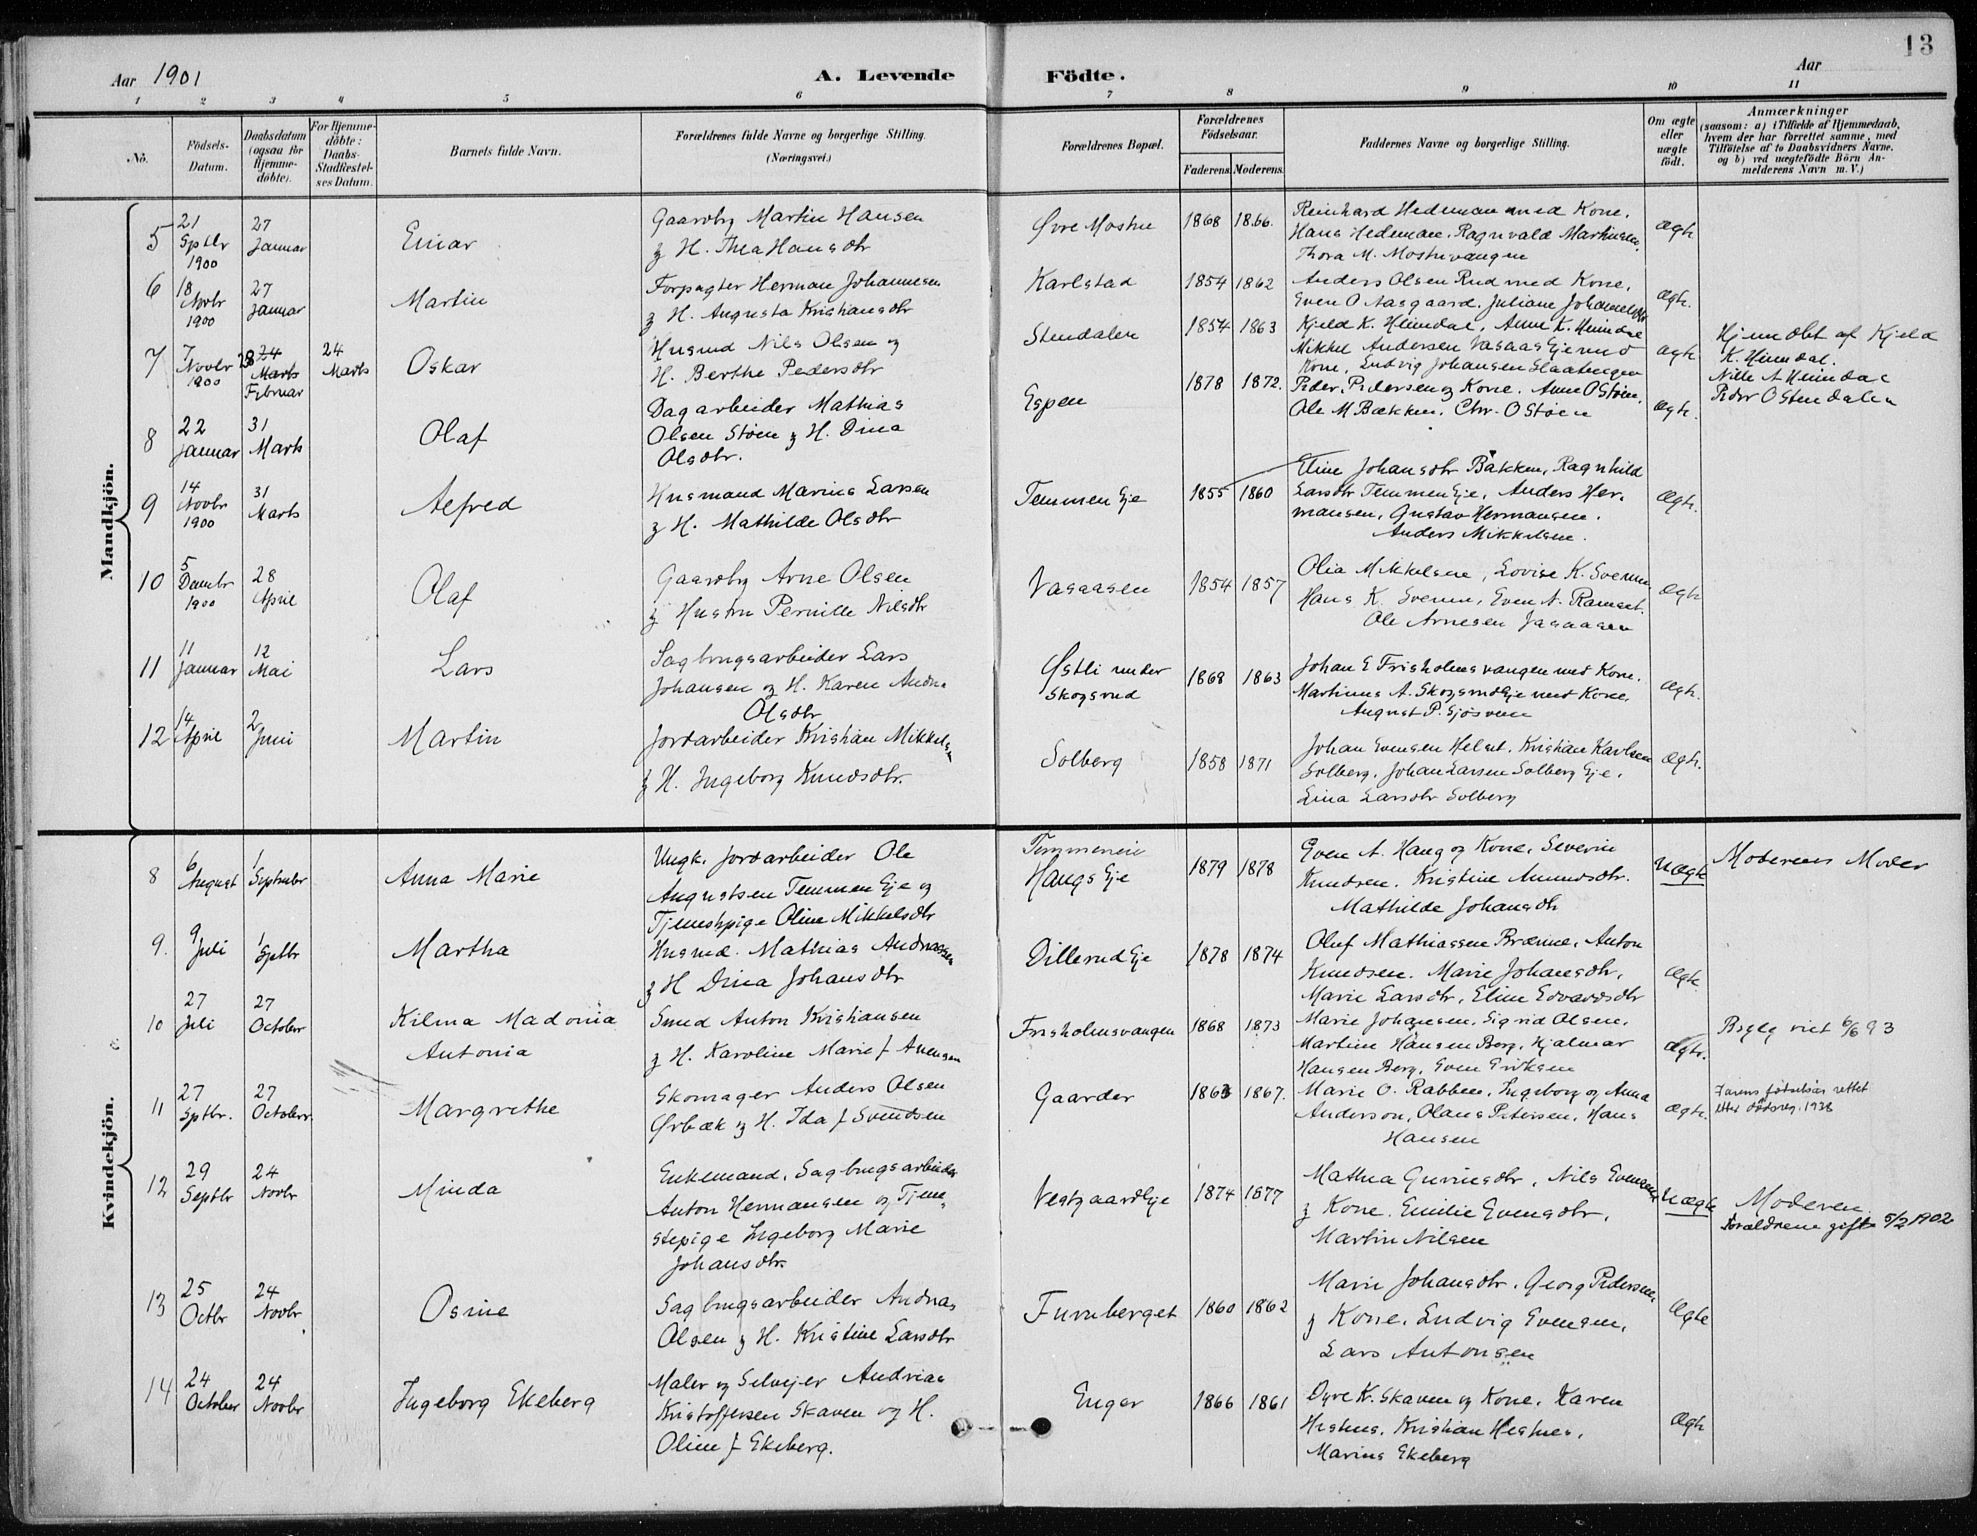 13
Aar 1901
A. Levende Födte.
Aar
1 2 3 4 5 6 7 8 9 10 11
No.
Födsels-
Datum.
Daabsdatum
(ogsaa for
Hjemme-
döbte).
For Hjemme-
döbte:
Daabs-
Stadfæstel-
ses Datum.
Barnets fulde Navn.
Forældrenes fulde Navne og borgerlige Stilling.
(Næringsvei.)
Forældrenes Bopæl.
Forældrenes
Födselsaar.
Faderens. Moderens.
Faddernes Navne og borgerlige Stilling.
Om ægte
eller
uægte
födt.
Anmærkninger
(saasom: a) i Tilfælde af Hjemmedaab,
hvem der har forrettet samme, med
Tilföielse af to Daabsvidners Navne.
og b) ved uægtefödte Börn An-
melderens Navn m. V.)
Mandkjön.
5
21
Sptbr
1900
27
Januar
Einar
Gaardbr Martin Hansen
og H. Thea Hansdtr
Øvre Mostue
1868 1866.
Reinhard Hedeman med Kone.
Hans Hedeman. Ragnvald Martinsen.
Thora M. Mostuvangen
Ægte
6
18
Novbr
1900
27
Januar
Martin
Forpagter Herman Johannesen
og H. Augusta Kristiansdtr
Karlstad
1854 1862
Anders Olsen Rud med Kone.
Even O Aasgaard. Juliane Johannesdtr
Ægte.
7
7
Novbr
1900
28 24
Marts
Februar
24
Marts
Oskar
Husmd Nils Olsen og
H. Berthe Pedersdtr
Stendalen
1854 1863
Kjeld K. Heimdal, Anne K. Heimdal
Mikkel Andersen Vasaas Eje med
Kone, Ludvig Johansen Slaabergen
Ægte
Hjemdøbt af Kjeld
K. Heimdal.
Nille A Heimdal
Peder O Stendalen
8
22
Januar
31
Marts
Olaf
Dagarbeider Mathias
Olsen Støen og H. Dina
Olsdtr.
Espen
1878 1872.
Peder Pedersen og Kone. Anne O Støen.
Ole M Bækken. Chr. O Støen
Ægte.
9
14
Novbr
1900
31
Marts
Alfred
Husmand Marius Larsen
og H. Mathilde Olsdtr
Temmen Eje
1855 1860
Eline Johansdtr Bakken, Ragnhild
Larsdtr Temmen Eje, Anders Her-
mansen, Gustav Hermansen.
Anders Mikkelsen.
Ægte.
10
5
Decmbr
1900
28
April
Olaf
Gaardbr Arne Olsen
og Hustru Pernille Nilsdtr
Vasaasen
1854 1857
Olia Mikkelsen, Lovise K. Sveum
Hans K. Sveum, Even N. Ramset.
Ole Arnesen Vasaasen
Ægte
11
11
Januar
12
Mai
Lars
Sagbrugsarbeider Lars
Johansen og H. Karen Andrea
Olsdtr
Østli under
Skogsrud
1868 1863
Johan E Frisholmsvangen med Kone.
Martinus A. Skogsrud Eje med Kone.
August P. Sjøsveen
Ægte.
12
14
April
2
Juni
Martin
Jordarbeider Kristian Mikkelsen
og H. Ingeborg Knudsdtr.
Solberg
1858 1871
Johan Evensen Helset. Kristian Karlsen
Solberg. Johan Larsen Solberg Eje.
Lina Larsdtr Solberg
Ægte.
Kvindekjön.
8
6
August
1
September
Anna Marie
Ungk. Jordarbeider Ole
Augustsen Temmen Eje og
Tjenestepige Oline Mikkelsdtr
Temmeneie
Haugs Eje
1879 1878
Even A. Haug og Kone, Severin
Knudsen. Kristine Amundsdtr.
Mathilde Johansdtr
Uægte
Moderens Moder
9.
9
Juli
1
Sptbr
Martha
Husmd. Mathias Andreassen
og H Dina Johansdtr
Dillerud Eje
1878 1874
Oluf Mathiassen Brænne, Anton
Knudsen. Marie Johansdtr,
Marie Larsdtr, Eline Edvardsdtr
Ægte
10
27
Juli
27
October
Kilma Madonia
Antonia
Smed Anton Kristiansen
og H. Karoline Marie f Arnesen
Frisholmsvangen
1868 1873
Marie Johansen, Sigrid Olsen.
Martine Hansen Berg, Hjalmar
Hansen Berg, Even Eriksen
Ægte.
Bryly viet 6/6 93
11
27
Sptbr.
27
October
Margrethe
Skomager Anders Olsen
Ørbæk og H. Ida f Svendsen
Gaarder
1863 1867.
Marie O. Rabben, Ingeborg og Anna
Anderson, Olaus Petersen, Hans
Hansen
Ægte.
Farens fødselsår rettet
etter dødsreg. 1938
12
29
Septbr
24
Novbr
Minda
Enkemand, Sagbrugsarbeider
Anton Hermansen og Tjene-
stepige Ingeborg Marie
Johansdtr.
Vestgaard Eje
1874 1877
Mathea Guriusdtr, Nils Evensen
og Kone. Emilie Evensdtr,
Martin Nilsen
Uægte
Moderen.
Forældrene gift 5/2 1902
13
25
Octbr
24
Novbr
Osine
Sagbrugsarbeider Andreas
Olsen og H. Kristine Larsdtr
Furuberget
1860 1862
Marie Johansdtr. Georg Pedersen
og Kone. Ludvig Evensen,
Lars Antonsen
Ægte
14
24
October
24
Novbr
Ingeborg Ekeberg
Maler og Selveier Andreas
Kristoffersen Skaven og H.
Oline f Ekeberg.
Enger
1866 1861
Dyre Kr. Skaven og Kone. Karen
Hestnes, Kristian Hestnes,
Marius Ekeberg
Ægte